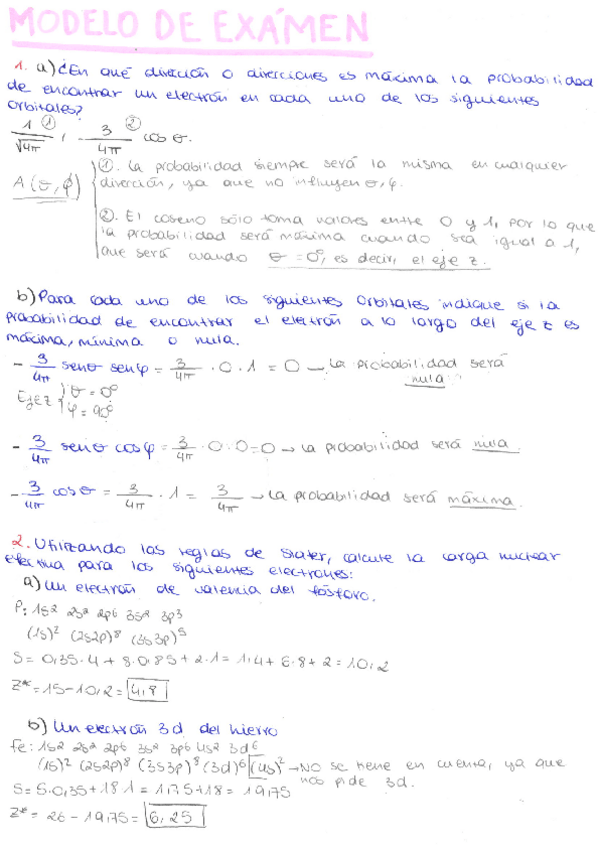 MODELO DE EXÁMEN
1. a) ¿En qué dirección o direcciones es máxima la probabilidad
de encontrar un electrón en cada uno de los siguientes
orbitales?
1/√4π ①, 3/4π ② cos θ.
A(θ,φ) { ①. La probabilidad siempre será la misma en cualquier
dirección, ya que no influyen θ, φ.
②. El coseno sólo toma valores entre 0 y 1, por lo que
la probabilidad será máxima cuando sea igual a 1,
que será cuando θ = 0º, es decir, el eje z.
b) Para cada uno de los siguientes orbitales indique si la
probabilidad de encontrar el electrón a lo largo del eje z es
máxima, mínima o nula.
- 3/4π senθ senφ = 3/4π · 0 · 1 = 0 → La probabilidad será
nula.
Eje z { θ = 0º
φ = 90º
- 3/4π senθ cosφ = 3/4π · 0 · 0 = 0 → La probabilidad será nula.
- 3/4π cosθ = 3/4π · 1 = 3/4π → La probabilidad será máxima.
2. Utilizando las reglas de Slater, calcule la carga nuclear
efectiva para los siguientes electrones:
a) Un electrón de valencia del fósforo.
P: 1s² 2s² 2p⁶ 3s² 3p³
(1s)² (2s2p)⁸ (3s3p)⁵
S = 0,35·4 + 8·0,85 + 2·1 = 1,4 + 6,8 + 2 = 10,2
Z* = 15 - 10,2 = 4,8
b) Un electrón 3d del hierro
Fe: 1s² 2s² 2p⁶ 3s² 3p⁶ 4s² 3d⁶
(1s)² (2s2p)⁸ (3s3p)⁸ (3d)⁶ (4s)² → NO se tiene en cuenta, ya que
nos pide 3d.
S = 5·0,35 + 18·1 = 1,75 + 18 = 19,75
Z* = 26 - 19,75 = 6,25